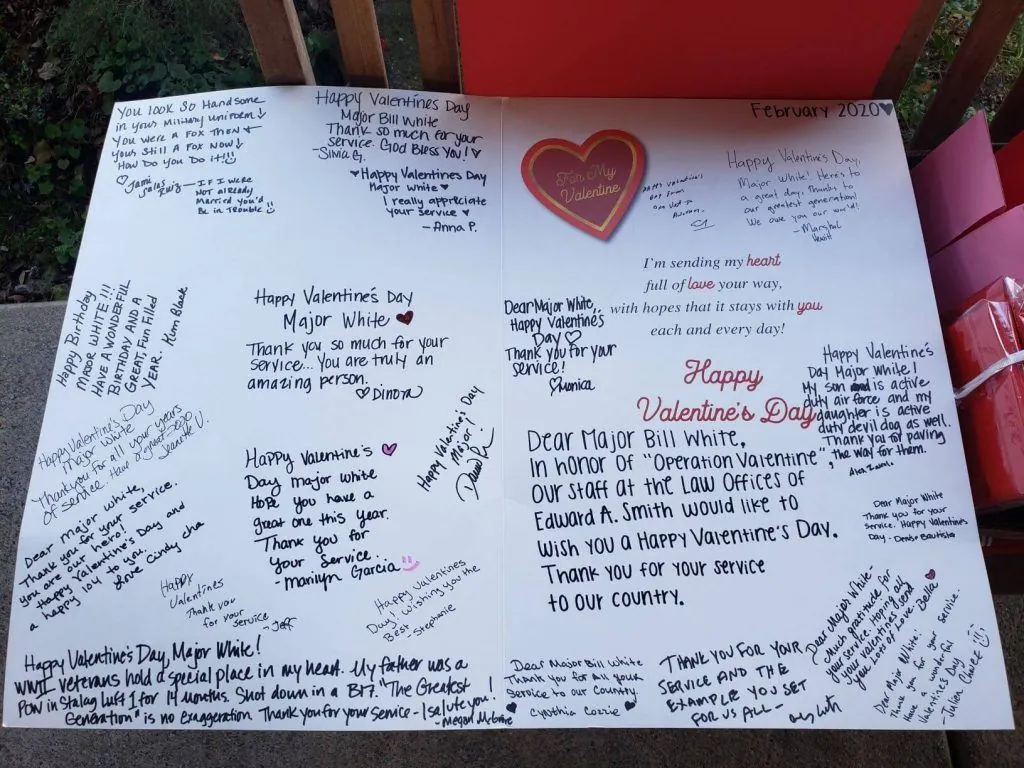 You look so Handsome
in your Military uniform
You were a Fox Then
Your Still a Fox Now
How Do You Do it!!!
Jami
Salas
Ruiz — IF I were
Not already
Married you'd
Be in Trouble
Happy Valentines Day
Major Bill White
Thank so much for your
service. God Bless You!
- Silvia G.
Happy Valentines Day
Major White
I really appriciate
your service
- Anna P.
Happy Birthday
MAJOR WHITE!!!
HAVE A WONDERFUL
BIRTHDAY AND A
GREAT, Fun Filled
YEAR. Kim Black
Happy Valentine's Day
Major White
Thank you so much for your
service... You are truly an
amazing person.
Dinora
Happy Valentine's Day
Major White
Thank you for all your years
of service. Have a great 2020
Jeanette V.
Dear major white,
Thank you for your service.
you are our hero!
Happy Valentine's Day and
a happy 104 to you.
Love Cindy cha
Happy Valentine's
Day major white
Hope you have a
great one this year.
Thank you for
your service.
- marilyn Garcia
Happy Valentine's Day
Major!
Happy
Valentines
Thank you
for your service
- Jeff
Happy Valentines
Day! Wishing you the
Best
Stephanie
Happy Valentine's Day, Major White!
WWII veterans hold a special place in my heart. My father was a
POW in Stalag Luft 1 for 14 months. Shot down in a B17. "The Greatest
Generation" is no exaggeration. Thank you for your service - I salute you!
- Megan
February 2020
For My
Valentine
Happy Valentine's
Day from
one Vet to
Another.
Happy Valentine's Day,
Major White! Here's to
a great day, thanks to
our greatest generation!
We owe you our world!
- Marshal
Hewitt
I'm sending my heart
full of love your way,
with hopes that it stays with you
each and every day!
Happy
Valentine's Day
Dear Major White,
Happy Valentine's
Day
Thank you for your
service!
Monica
Happy Valentine's
Day Major White!
My son is active
duty air force and my
daughter is active
duty devil dog as well.
Thank you for paving
the way for them.
Dear Major Bill White,
In honor of "Operation Valentine",
our staff at the Law Offices of
Edward A. Smith would like to
wish you a Happy Valentine's Day.
Thank you for your service
to our country.
Dear Major White
Thank you for your
service. Happy Valentines
Day - Denise Bautista
Dear Major White -
Much gratitude for
your service. Hoping all
your valentines send
you Lots of Love. Bella
Dear Major Bill White
Thank you for all your
Service to our Country.
Cynthia
THANK YOU FOR YOUR
SERVICE AND THE
EXAMPLE YOU SET
FOR US ALL -
Dear Major White:
Thank you for your service.
Have a wonderful
Valentine's Day
- Julian Chavez!!!